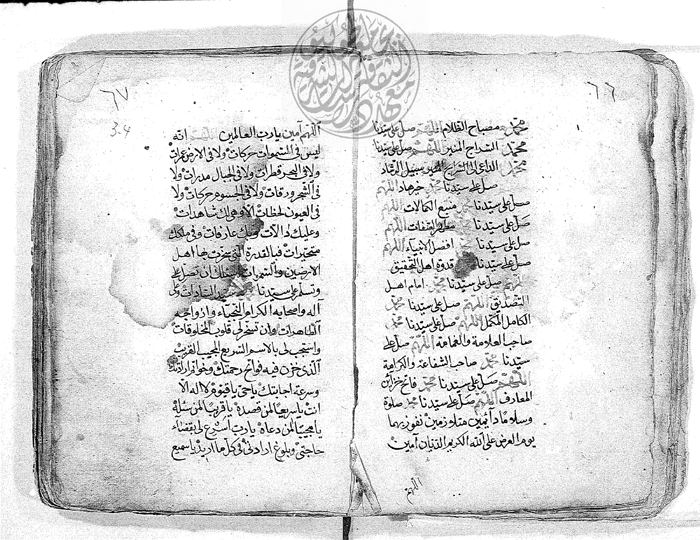 ٦٦
محمد مصباح الظلام اللهم صل على سيدنا
محمد السراج المنير اللهم صل على سيدنا
محمد الداعى الى الله سبيل الرشاد
صل على سيدنا محمد خير هاد اللهم
صل على سيدنا محمد منبع الكمالات اللهم
صل على سيدنا محمد اللهم
صل على سيدنا محمد افضل الانبياء اللهم
صل على سيدنا محمد قدوة اهل التحقيق
اللهم صل على سيدنا محمد امام اهل
التصديق اللهم صل على سيدنا محمد
الكامل المكمل اللهم صل على سيدنا محمد
صاحب العلامة والغمامة اللهم صل على
سيدنا محمد صاحب الشفاعة والكرامة
اللهم صل على سيدنا محمد فاتح خزاين
المعارف اللهم صل على سيدنا محمد صلوة
وسلاما دائمين متلازمين نفوز بهما
يوم العرض على الله الكريم الديان آمين
اللهم
٦٧
34
اللهم آمين يا رب العالمين انه
ليس فى السموات حركات ولا فى الارض
ولا فى البحر قطرات ولا فى الجبال مدرات ولا
فى الشجر ورقات ولا فى الجسوم حركات ولا
فى العيون لحظات الا وهى لك شاهدات
وعليك دالات عارفات وفى ملكك
متحيرات فبالقدرة التى سخرت بها اهل
الارضين والسموات ان تصلى على
وتسلم على سيدنا محمد السادات وعلى
آله واصحابه الكرام النجباء وازواجه
الطاهرات وان تسخر لى قلوب المخلوقات
واستجب لى بالاسم السريع المجيب القريب
الذى خزنت فيه فواتح رحمتك وخواتم ارادتك
وسرعة اجابتك يا حى يا قيوم لا اله الا
انت يا سريعا لمن قصده يا قريبا لمن سئله
يا مجيبا لمن دعاه يا رب اسرع لى بقضاء
حاجتى وبلوغ ارادتى فى كل ما اريد يا سميع